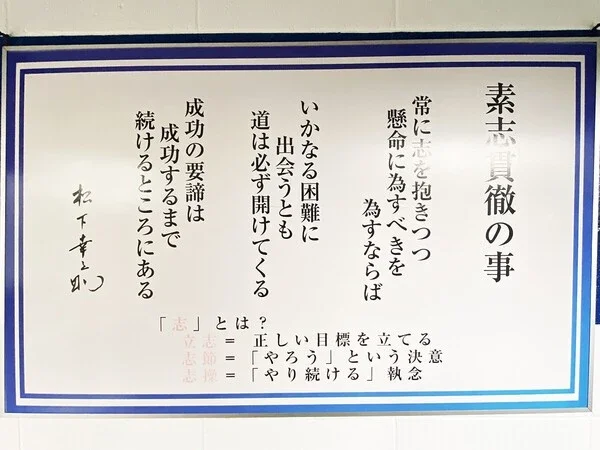 素志貫徹の事
常に志を抱きつつ
懸命に為すべきを
為すならば
いかなる困難に
出会うとも
道は必ず開けてくる
成功の要諦は
成功するまで
続けるところにある
松下幸之助
「志」とは？
立志＝正しい目標を立てる
志節＝「やろう」という決意
志操＝「やり続ける」執念